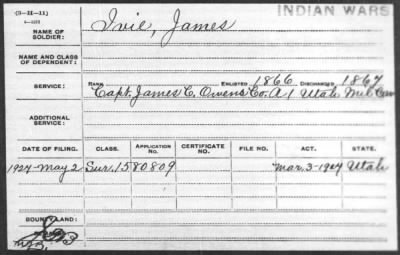 (3-11-11)
INDIAN WARS
NAME OF SOLDIER: Ivie, James
NAME AND CLASS OF DEPENDENT:
SERVICE: RANK ENLISTED 1866 DISCHARGED 1867
Capt. James C. Owens Co. A 1 Utah Mil Cav
ADDITIONAL SERVICE:
DATE OF FILING. CLASS. APPLICATION NO. CERTIFICATE NO. FILE NO. ACT. STATE.
1927-May 2 Sur. 1580809 Mar. 3-1927 Utah
BOUNTY LAND: